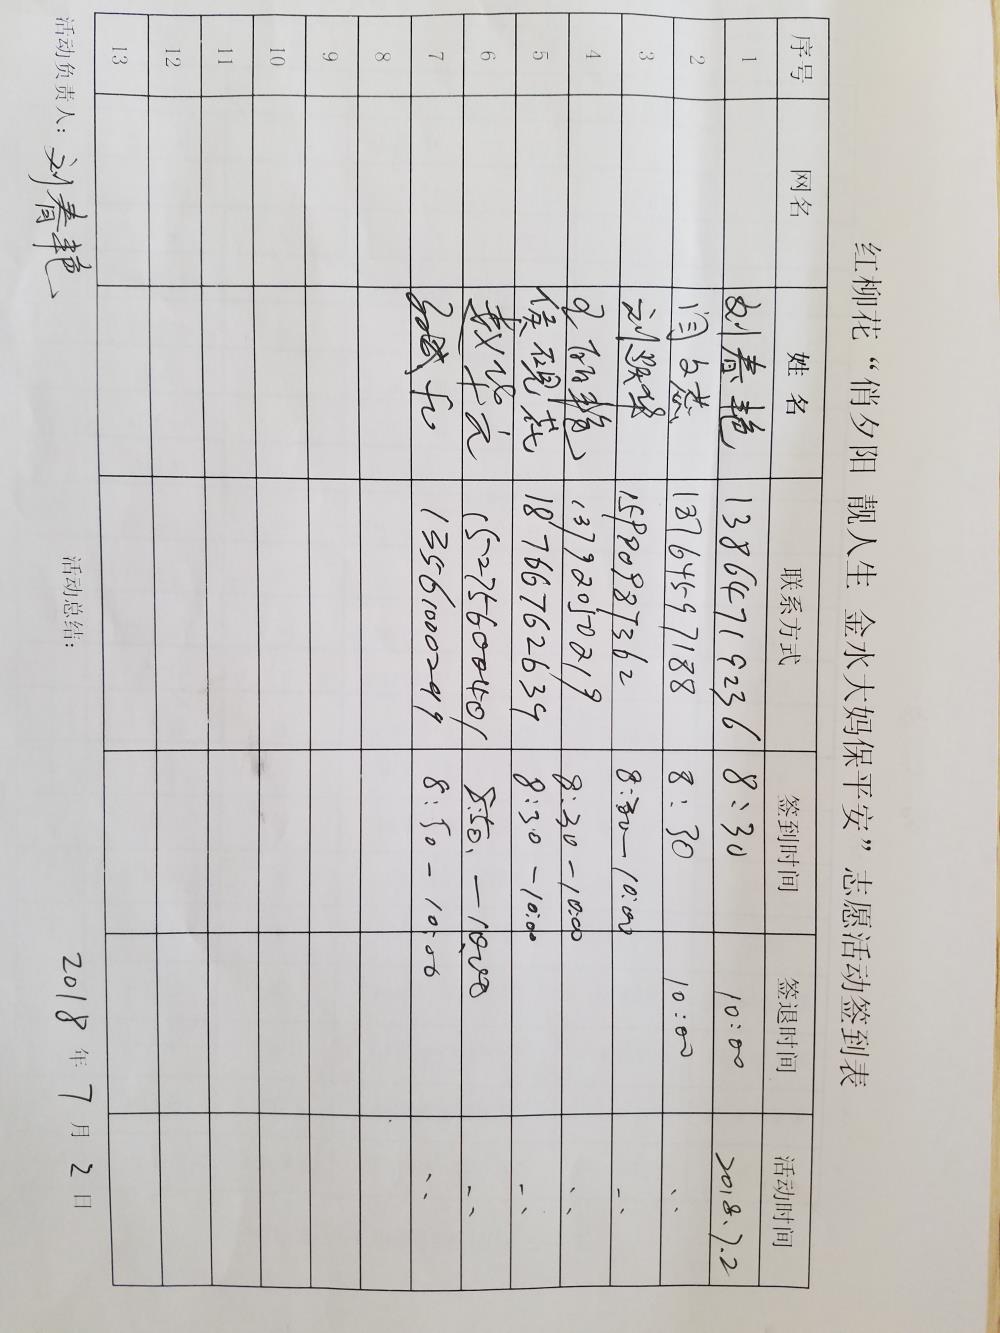 红柳花“俏夕阳 靓人生 金水大妈保平安”志愿活动签到表
序号 网名 姓名 联系方式 签到时间 签退时间 活动时间
1 刘春艳 13864719236 8:30 10:00 2018.7.2
2 闫 13764597188 8:30 10:00 〃
3 刘 15980987362 8:30—10:00 〃
4 13792050219 8:30-10:00 〃
5 侯砚花 18766762639 8:30-10:00 〃
6 15275600401 8:50.—10:00 〃
7 13561000299 8:50-10:00 〃
8
9
10
11
12
13
活动负责人：刘春艳 活动总结： 2018年7月2日